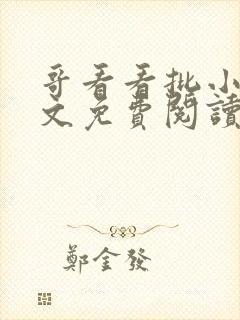 哥看看批小
文免費閱讀
鄭金發